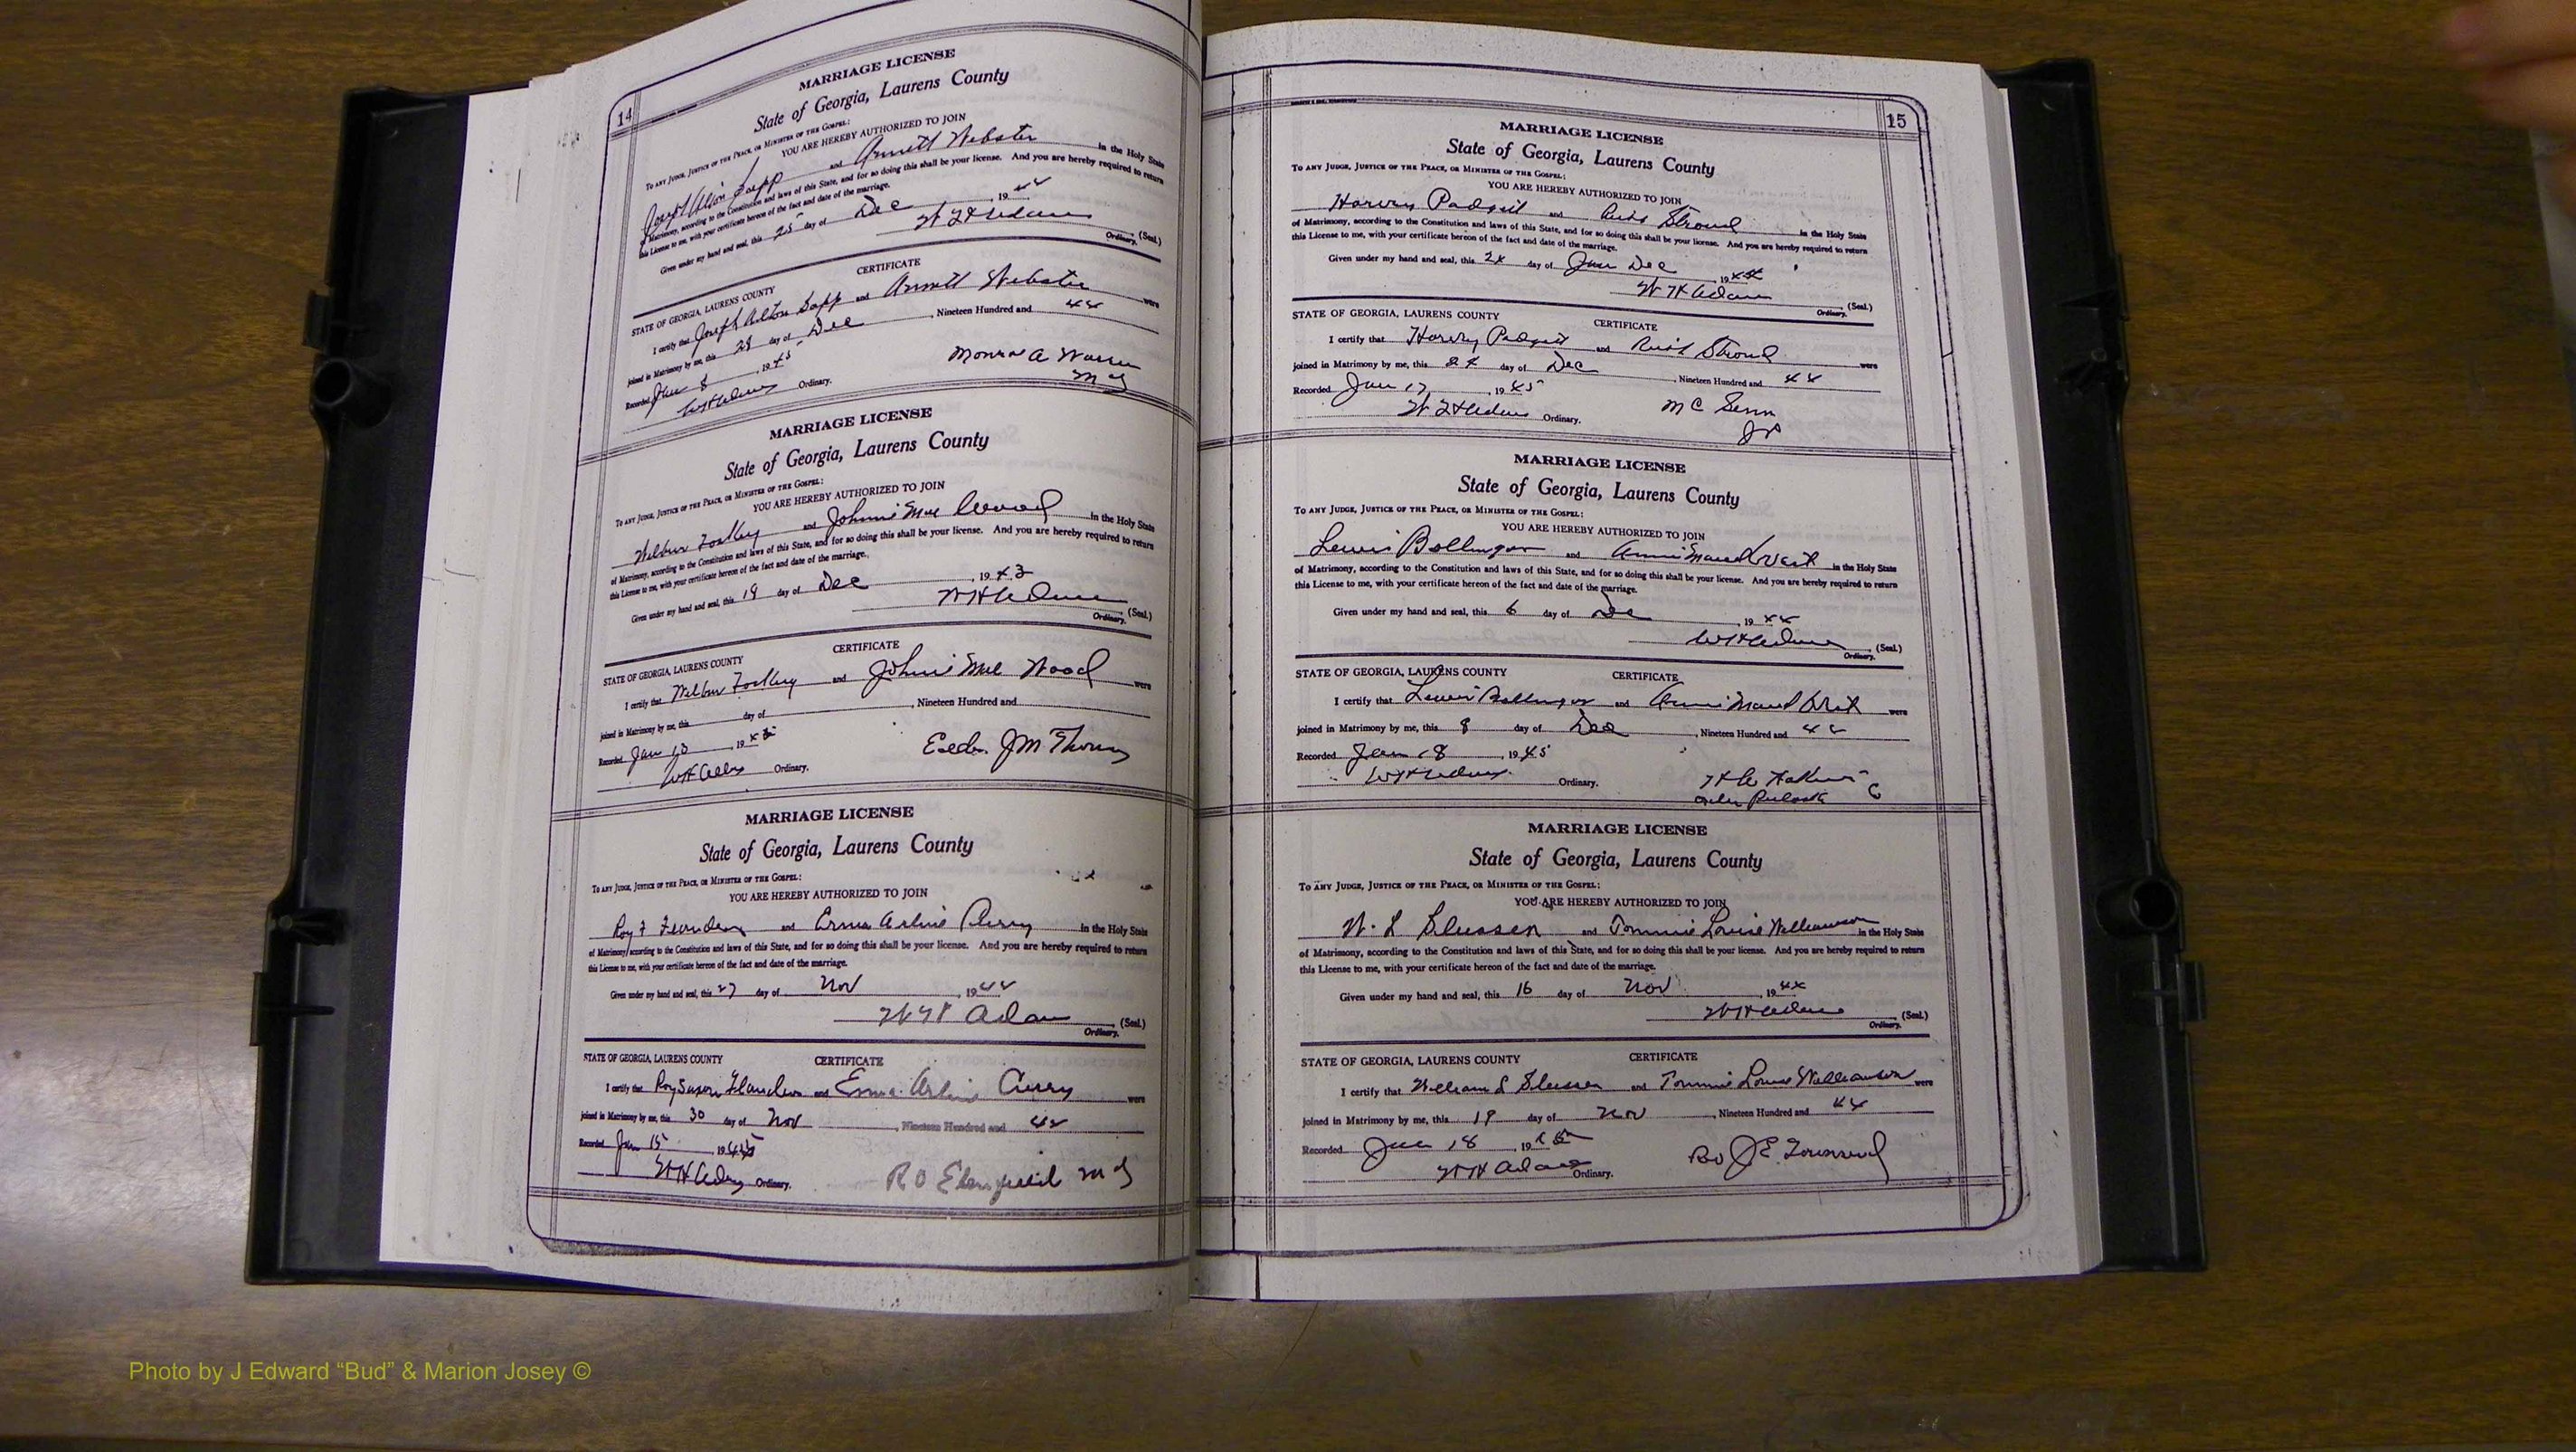 14
MARRIAGE LICENSE
State of Georgia, Laurens County
TO ANY JUDGE, JUSTICE OF THE PEACE, OR MINISTER OF THE GOSPEL:
YOU ARE HEREBY AUTHORIZED TO JOIN
Joseph Alton Sapp and Annett Webster in the Holy State
of Matrimony, according to the Constitution and laws of this State, and for so doing this shall be your license. And you are hereby required to return
this License to me, with your certificate hereon of the fact and date of the marriage.
Given under my hand and seal, this 25 day of Dec, 1944
W H Adams (Seal.)
Ordinary.
CERTIFICATE
STATE OF GEORGIA, LAURENS COUNTY
I certify that Joseph Alton Sapp and Annett Webster were
joined in Matrimony by me, this 28 day of Dec, Nineteen Hundred and 44
Recorded Jan 8, 1945
W H Adams Ordinary.
Monroe A Warren
M G
MARRIAGE LICENSE
State of Georgia, Laurens County
TO ANY JUDGE, JUSTICE OF THE PEACE, OR MINISTER OF THE GOSPEL:
YOU ARE HEREBY AUTHORIZED TO JOIN
Wilbur and Johnnie Mae Wood in the Holy State
of Matrimony, according to the Constitution and laws of this State, and for so doing this shall be your license. And you are hereby required to return
this License to me, with your certificate hereon of the fact and date of the marriage.
Given under my hand and seal, this 19 day of Dec, 1943
W H Adams (Seal.)
Ordinary.
CERTIFICATE
STATE OF GEORGIA, LAURENS COUNTY
I certify that Wilbur and Johnie Mae Wood were
joined in Matrimony by me, this day of, Nineteen Hundred and
Recorded Jan 13, 19
W H Ordinary.
J M Thomas
MARRIAGE LICENSE
State of Georgia, Laurens County
TO ANY JUDGE, JUSTICE OF THE PEACE, OR MINISTER OF THE GOSPEL:
YOU ARE HEREBY AUTHORIZED TO JOIN
Roy and Erma Arline Curry in the Holy State
of Matrimony, according to the Constitution and laws of this State, and for so doing this shall be your license. And you are hereby required to return
this License to me, with your certificate hereon of the fact and date of the marriage.
Given under my hand and seal, this 27 day of Nov, 1944
W H Adams (Seal.)
Ordinary.
STATE OF GEORGIA, LAURENS COUNTY CERTIFICATE
I certify that Roy Flanders and Erma Arline Curry were
joined in Matrimony by me, this 30 day of Nov, Nineteen Hundred and 44
Recorded Jan 15, 1945
W H Adams Ordinary.
R O M G
15
MARRIAGE LICENSE
State of Georgia, Laurens County
TO ANY JUDGE, JUSTICE OF THE PEACE, OR MINISTER OF THE GOSPEL:
YOU ARE HEREBY AUTHORIZED TO JOIN
Harvey Padgett and Ruth Stroud in the Holy State
of Matrimony, according to the Constitution and laws of this State, and for so doing this shall be your license. And you are hereby required to return
this License to me, with your certificate hereon of the fact and date of the marriage.
Given under my hand and seal, this 24 day of Dec, 1944
W H Adams (Seal.)
Ordinary.
STATE OF GEORGIA, LAURENS COUNTY CERTIFICATE
I certify that Harvey Padgett and Ruth Stroud were
joined in Matrimony by me, this 24 day of Dec, Nineteen Hundred and 44
Recorded Jan 17, 1945
W H Adams Ordinary.
M C Senn
J P
MARRIAGE LICENSE
State of Georgia, Laurens County
TO ANY JUDGE, JUSTICE OF THE PEACE, OR MINISTER OF THE GOSPEL:
YOU ARE HEREBY AUTHORIZED TO JOIN
Lewis Bollinger and Annie Maud in the Holy State
of Matrimony, according to the Constitution and laws of this State, and for so doing this shall be your license. And you are hereby required to return
this License to me, with your certificate hereon of the fact and date of the marriage.
Given under my hand and seal, this 6 day of Dec, 1944
W H Adams (Seal.)
Ordinary.
STATE OF GEORGIA, LAURENS COUNTY CERTIFICATE
I certify that Lewis Bollinger and Annie Maud were
joined in Matrimony by me, this 8 day of Dec, Nineteen Hundred and 44
Recorded Jan 18, 1945
W H Adams Ordinary.
MARRIAGE LICENSE
State of Georgia, Laurens County
TO ANY JUDGE, JUSTICE OF THE PEACE, OR MINISTER OF THE GOSPEL:
YOU ARE HEREBY AUTHORIZED TO JOIN
W. L and Tommie Louise Williamson in the Holy State
of Matrimony, according to the Constitution and laws of this State, and for so doing this shall be your license. And you are hereby required to return
this License to me, with your certificate hereon of the fact and date of the marriage.
Given under my hand and seal, this 16 day of Nov, 1944
W H Adams (Seal.)
Ordinary.
STATE OF GEORGIA, LAURENS COUNTY CERTIFICATE
I certify that William L and Tommie Louise Williamson were
joined in Matrimony by me, this 19 day of Nov, Nineteen Hundred and 44
Recorded Jan 18, 1945
W H Adams Ordinary.
J E Townsend
Photo by J Edward “Bud” & Marion Josey ©